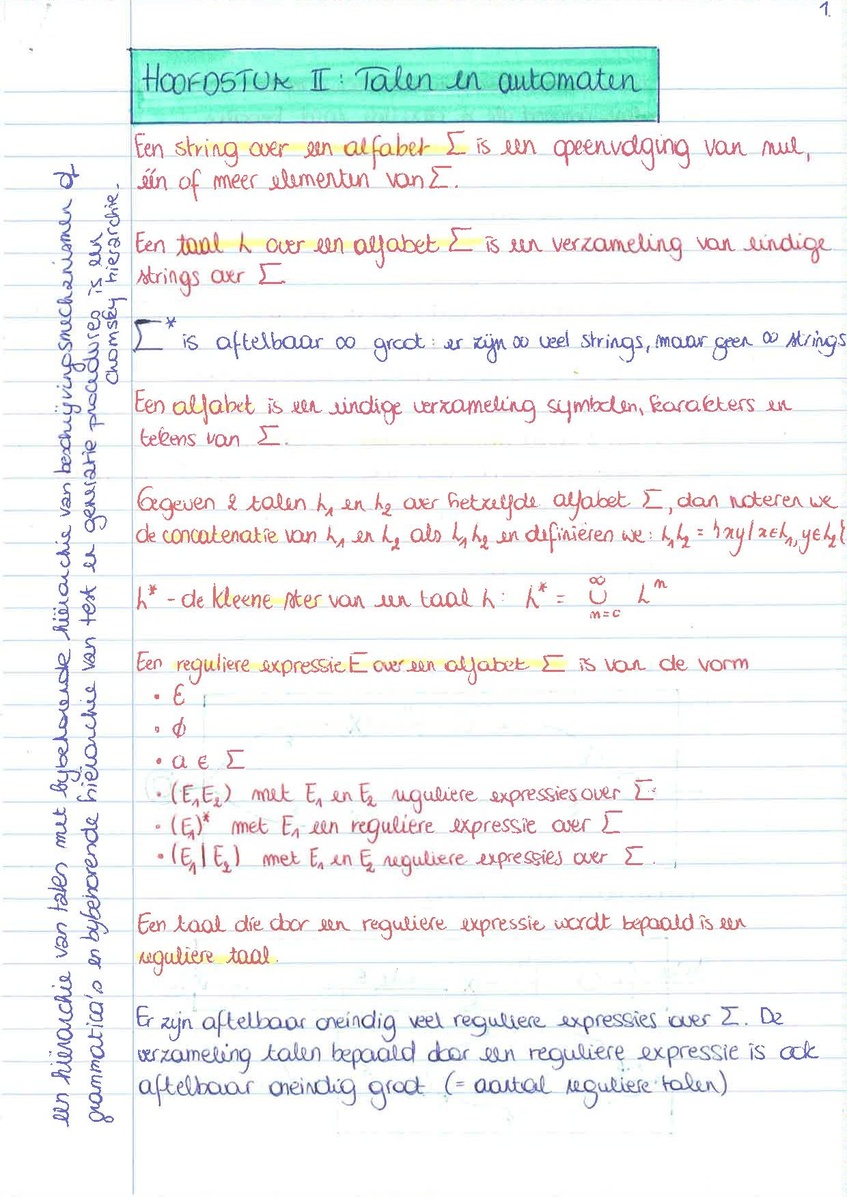 1.
HOOFDSTUK II: Talen en automaten
Een string over een alfabet Σ is een opeenvolging van nul,
één of meer elementen van Σ.
Een taal L over een alfabet Σ is een verzameling van eindige
strings over Σ
Σ* is aftelbaar ∞ groot: er zijn ∞ veel strings, maar geen ∞ strings
Een alfabet is een eindige verzameling symbolen, karakters en
tekens van Σ.
Gegeven 2 talen L₁ en L₂ over hetzelfde alfabet Σ, dan noteren we
de concatenatie van L₁ en L₂ als L₁L₂ en definiëren we: L₁L₂ = {xy | x∈L₁, y∈L₂}
L* - de kleene ster van een taal L: L* = ∞∪n=0 Lⁿ
Een reguliere expressie E over een alfabet Σ is van de vorm
• ε
• ϕ
• a ∈ Σ
• (E₁E₂) met E₁ en E₂ reguliere expressies over Σ
• (E₁)* met E₁ een reguliere expressie over Σ
• (E₁|E₂) met E₁ en E₂ reguliere expressies over Σ.
Een taal die door een reguliere expressie wordt bepaald is een
reguliere taal.
Er zijn aftelbaar oneindig veel reguliere expressies over Σ. De
verzameling talen bepaald door een reguliere expressie is ook
aftelbaar oneindig groot (= aantal reguliere talen)
een hiërarchie van talen met bijbehorende hiërarchie van beschrijvingsmechanismen of
grammatica's en bijbehorende hiërarchie van test en generatie procedures is een
chomsky hierarchie.